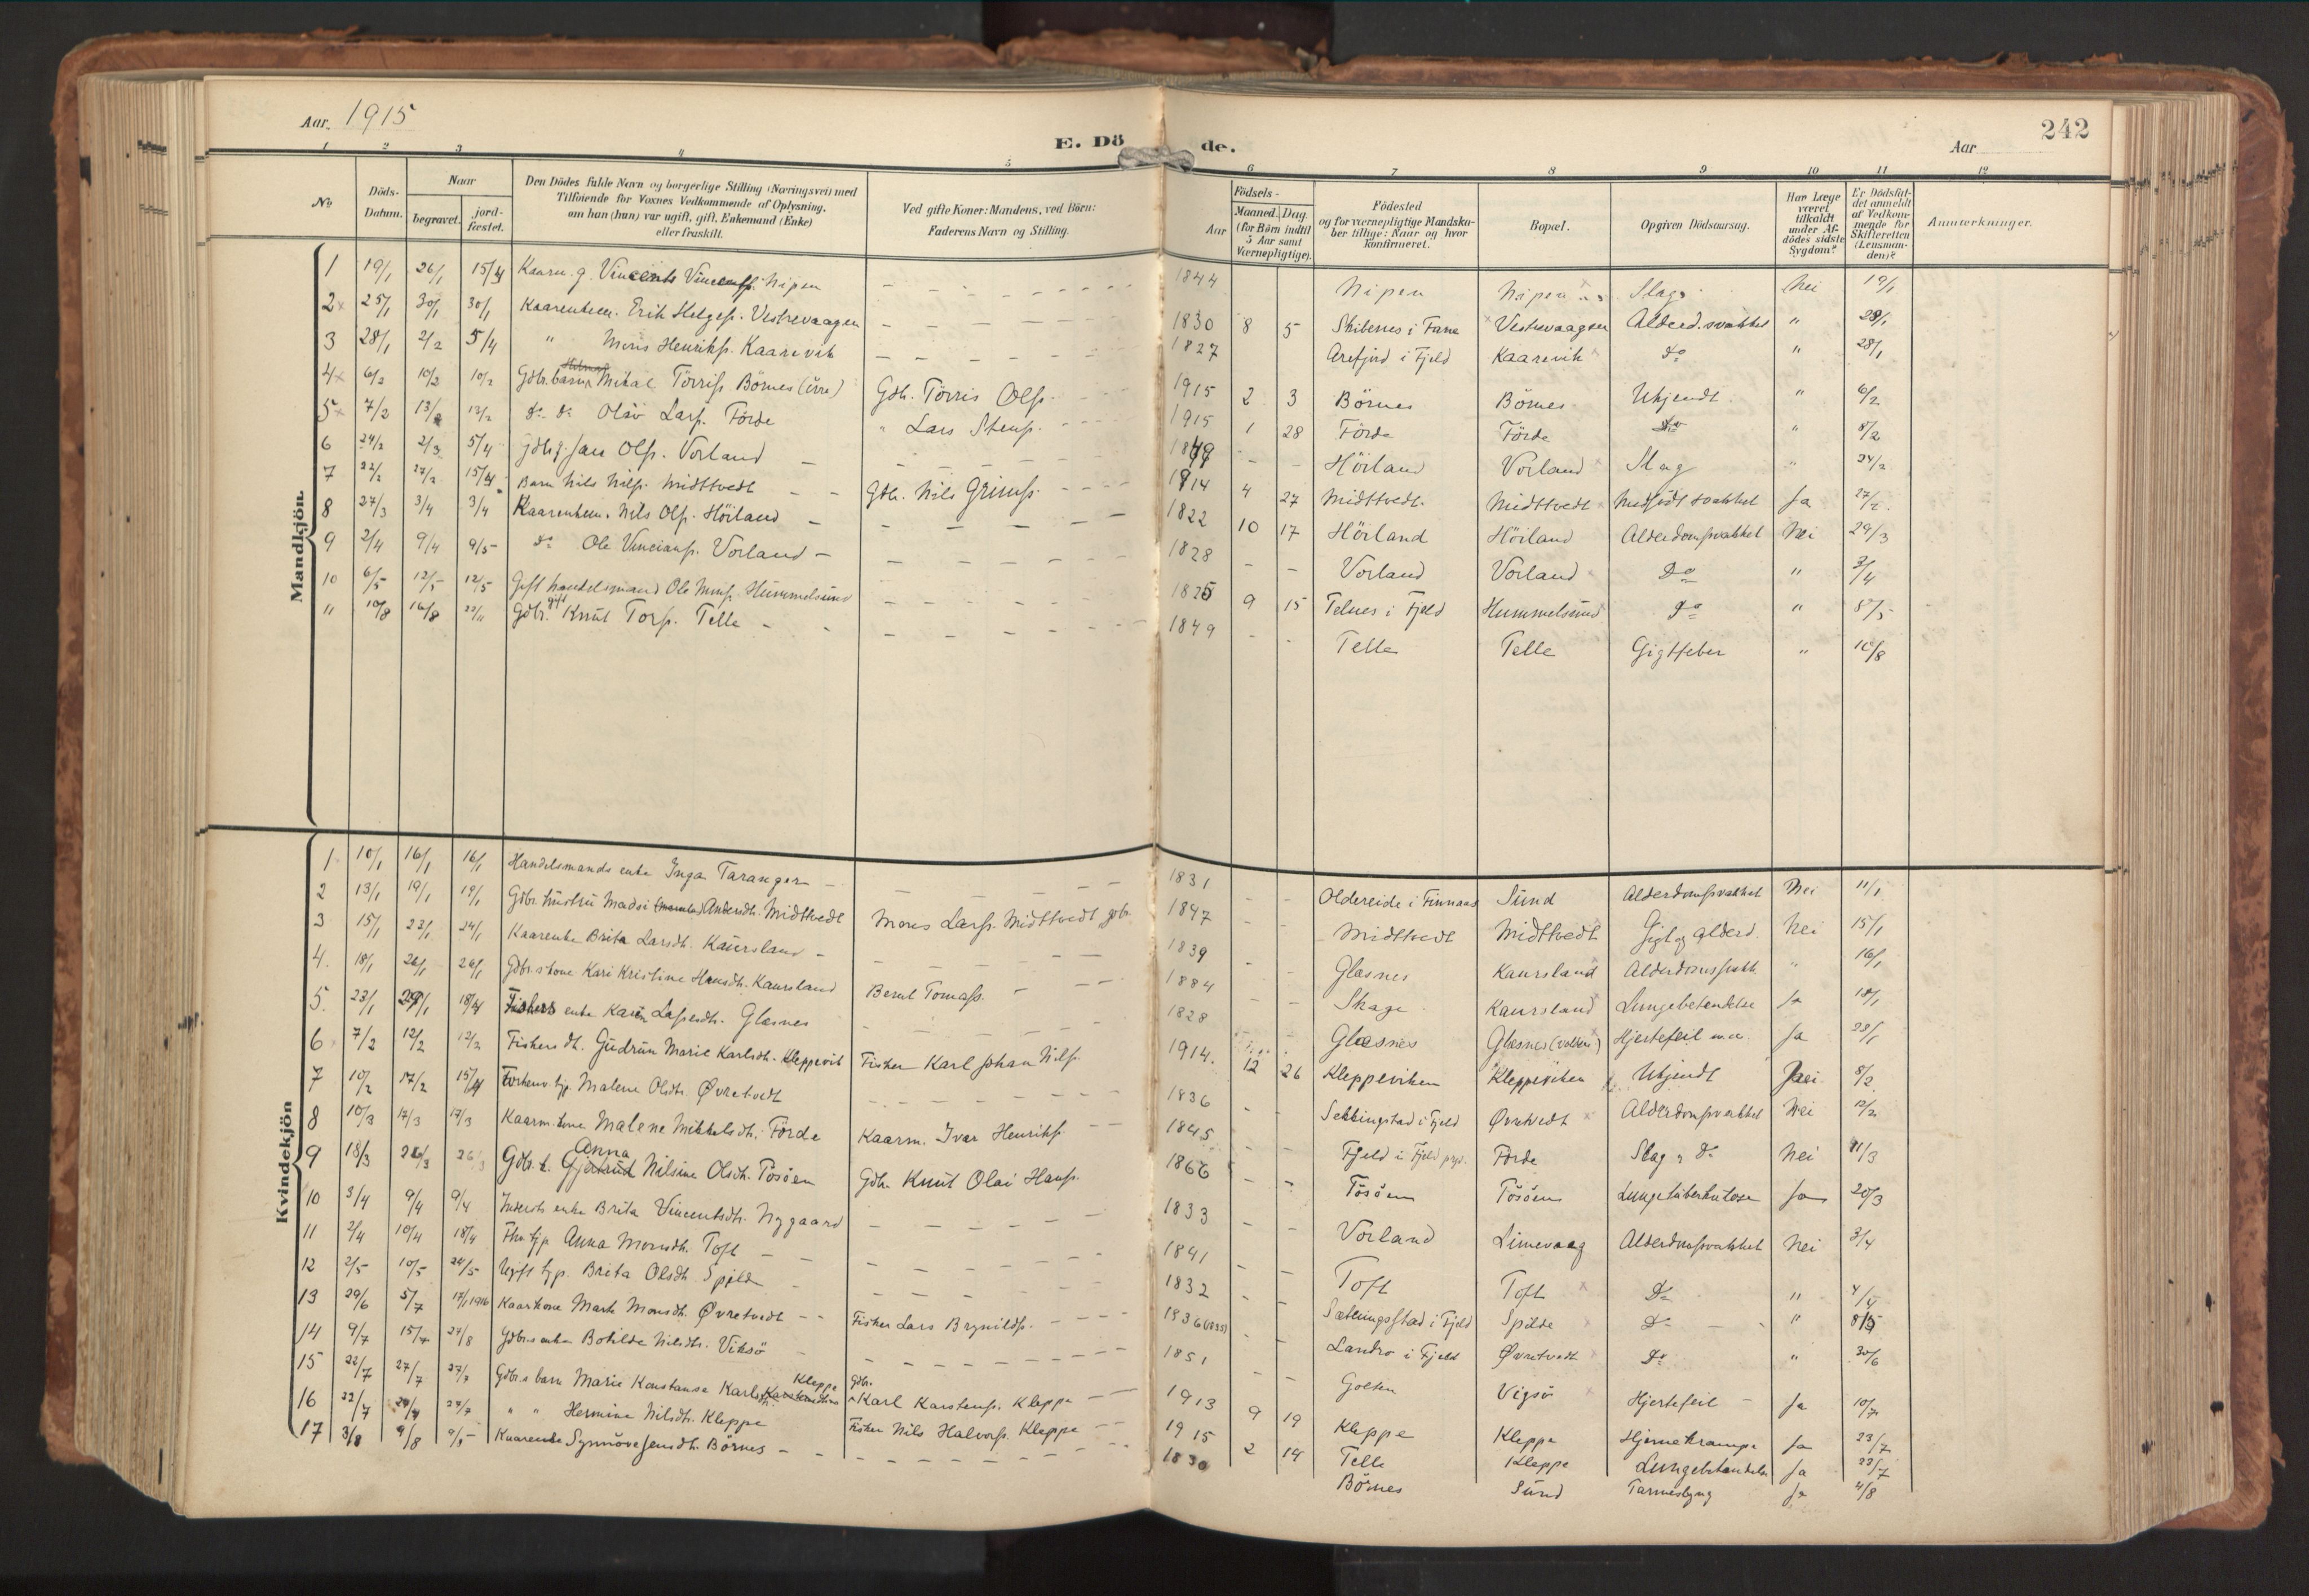 Aar 1915
E. Döde.
Aar
242
1 2 3 4 5 6 7 8 9 10 11 12
№
Döds-Datum.
Naar begravet. jordfæstet.
Den Dödes fulde Navn og borgerlige Stilling (Næringsvei) med Tilföiende for Voxnes Vedkommende af Oplysning, om han (hun) var ugift, gift, Enkemand (Enke) eller fraskilt.
Ved gifte Koner: Mandens, ved Börn: Faderens Navn og Stilling.
Födsels- Aar Maaned. Dag. (for Börn indtil 5 Aar samt Værnepligtige).
Födested og for værnepligtige Mandskaber tillige: Naar og hvor Konfirmeret.
Bopæl.
Opgiven Dödsaarsag.
Har Læge været tilkaldt under Afdödes sidste Sygdom?
Er Dödsfaldet anmeldt af Vedkommende for Skifteretten (Lensmanden)?
Anmærkninger.
Mandkjön.
1 19/1 26/1 15/4 Kaarm. g. Vincents Vincentss. Nipen 1844 Nipen Nipen Slag Nei 19/1
2 25/1 30/1 30/1 Kaarenkem. Erik Helges. Vestrevaagen 1830 8 5 Skibenes i Fane Vestrevaagen Alderd.svakhet " 28/1
3 28/1 2/2 5/4 " Mons Henrikss. Kaarevik 1827 Arefjord i Fjeld Kaarevik Do " 28/1
4 6/2 10/2 10/2 Gdbr. barn Mikal Törriss. Börnes (övre) Gdb. Törris Olss. 1915 2 3 Börnes Börnes Ukjendt " 6/2
5 7/2 13/2 13/2 do do Olav Larss. Förde " Lars Stens. 1915 1 28 Förde Förde Do " 8/2
6 24/2 2/3 5/4 gdb. g. Jan Olss. Vorland 1849 Höiland Vorland Slag " 24/2
7 22/2 27/2 15/4 Barn Nils Nilss. Midttvedt Gdb. Nils Grimss. 1914 4 27 Midttvedt Midttvedt Medfödt svakhet Ja 27/2
8 27/3 3/4 3/4 Kaarenkem. Nils Olss. Höiland 1822 10 17 Höiland Höiland Alderdomssvakhet Nei 29/3
9 2/4 9/4 9/5 do Ole Vincians. Vorland 1828 Vorland Vorland Do " 3/4
10 6/5 12/5 12/5 Gift handelsmand Ole Monss. Hummelsund 1825 9 15 Telnes i Fjeld Hummelsund Do " 8/5
" 10/8 16/8 22/11 Gdbr. gift Knut Torss. Telle 1849 Telle Telle Gigtfeber " 10/8
Kvindekjön
1 10/1 16/1 16/1 Handelsmands enke Inga Taranger 1831 Oldereide i Finnaas Sund Alderdomssvakhet Nei 11/1
2 13/1 19/1 19/1 Gdbr. hustru Madsi Andersdt. Midttvedt Mons Larss. Midttvedt gdbr. 1847 Midttvedt Midttvedt Gigt og alderd. Nei 15/1
3 15/1 23/1 24/1 Kaarenke Brita Larsdt. Kaursland 1839 Glæsnes Kaursland Alderdomssvakh. " 16/1
4 18/1 26/1 26/1 Gdbr.s kone Kari Kristine Hansdt. Kaursland Bernt Tomass. 1884 Skage Kaursland Lungebetændelse Ja 18/1
5 23/1 29/1 18/4 Fiskers enke Karen Lassesdt. Glæsnes 1828 Glæsnes Glæsnes Hjertefeil m.m. Ja 28/1
6 7/2 12/2 12/2 Fiskers dt. Gudrun Marie Karlsdt. Kleppevik Fisker Karl Johan Nilss. 1914 12 26 Kleppeviken Kleppeviken Ukjendt Nei 8/2
7 10/2 17/2 15/4 Forhenv. tjp. Malene Olsdt. Øvretvedt 1836 Sekkingstad i Fjeld Øvretvedt Alderdomssvakhet Nei 12/2
8 10/3 17/3 17/3 Kaarm. kone Malene Mikkelsdt. Förde Kaarm. Ivar Henrikss. 1845 Fjeld i Fjeld prgd. Förde Slag Nei 11/3
9 18/3 26/3 26/3 Gdbr. k. Gjertrud Anna Nilsine Olsdt. Tösöen Gdb. Knut Olai Hanss. 1866 Tösöen Tösöen Lungetuberkulose Ja 20/3
10 3/4 9/4 9/4 Inderst enke Brita Vincentsdt. Nygaard 1833 Vorland Limevaag Alderdomssvakhet Nei 3/4
11 2/4 10/4 18/4 Fhv. tjp Anna Monsdt. Toft 1841 Toft Toft Do " 4/4
12 2/5 10/5 24/5 Ugift tjp. Brita Olsdt. Spilde 1832 Sætingsstad i Fjeld Spilde Do " 8/5
13 29/6 5/7 17/1 1916 Kaarkone Marta Monsdt. Øvretvedt Fisker Lars Brynildss. 1836 (1835) Landro i Fjeld Øvretvedt Do " 30/6
14 9/7 15/7 24/8 Gdbr.s enke Botilde Nilsdt. Viksö 1851 Golten Vigsö Hjertefeil Ja 10/7
15 22/7 27/7 27/7 Gdbr.s barn Marie Konstanse Karlsdt. Kleppe Gdbr. Karl Karstenss. Kleppe 1913 9 19 Kleppe Kleppe Hjernekrampe Ja 23/7
16 22/7 27/7 " " Hermine Nilsdt. Kleppe Fisker Nils Halvorss. Kleppe 1915 2 14 Telle Kleppe Lungebetændelse Ja 23/7
17 3/8 9/8 9/8 Kaarenke Synnöve Jensdt. Börnes 1830 Börnes Sund Tarmeslyng Ja 4/8